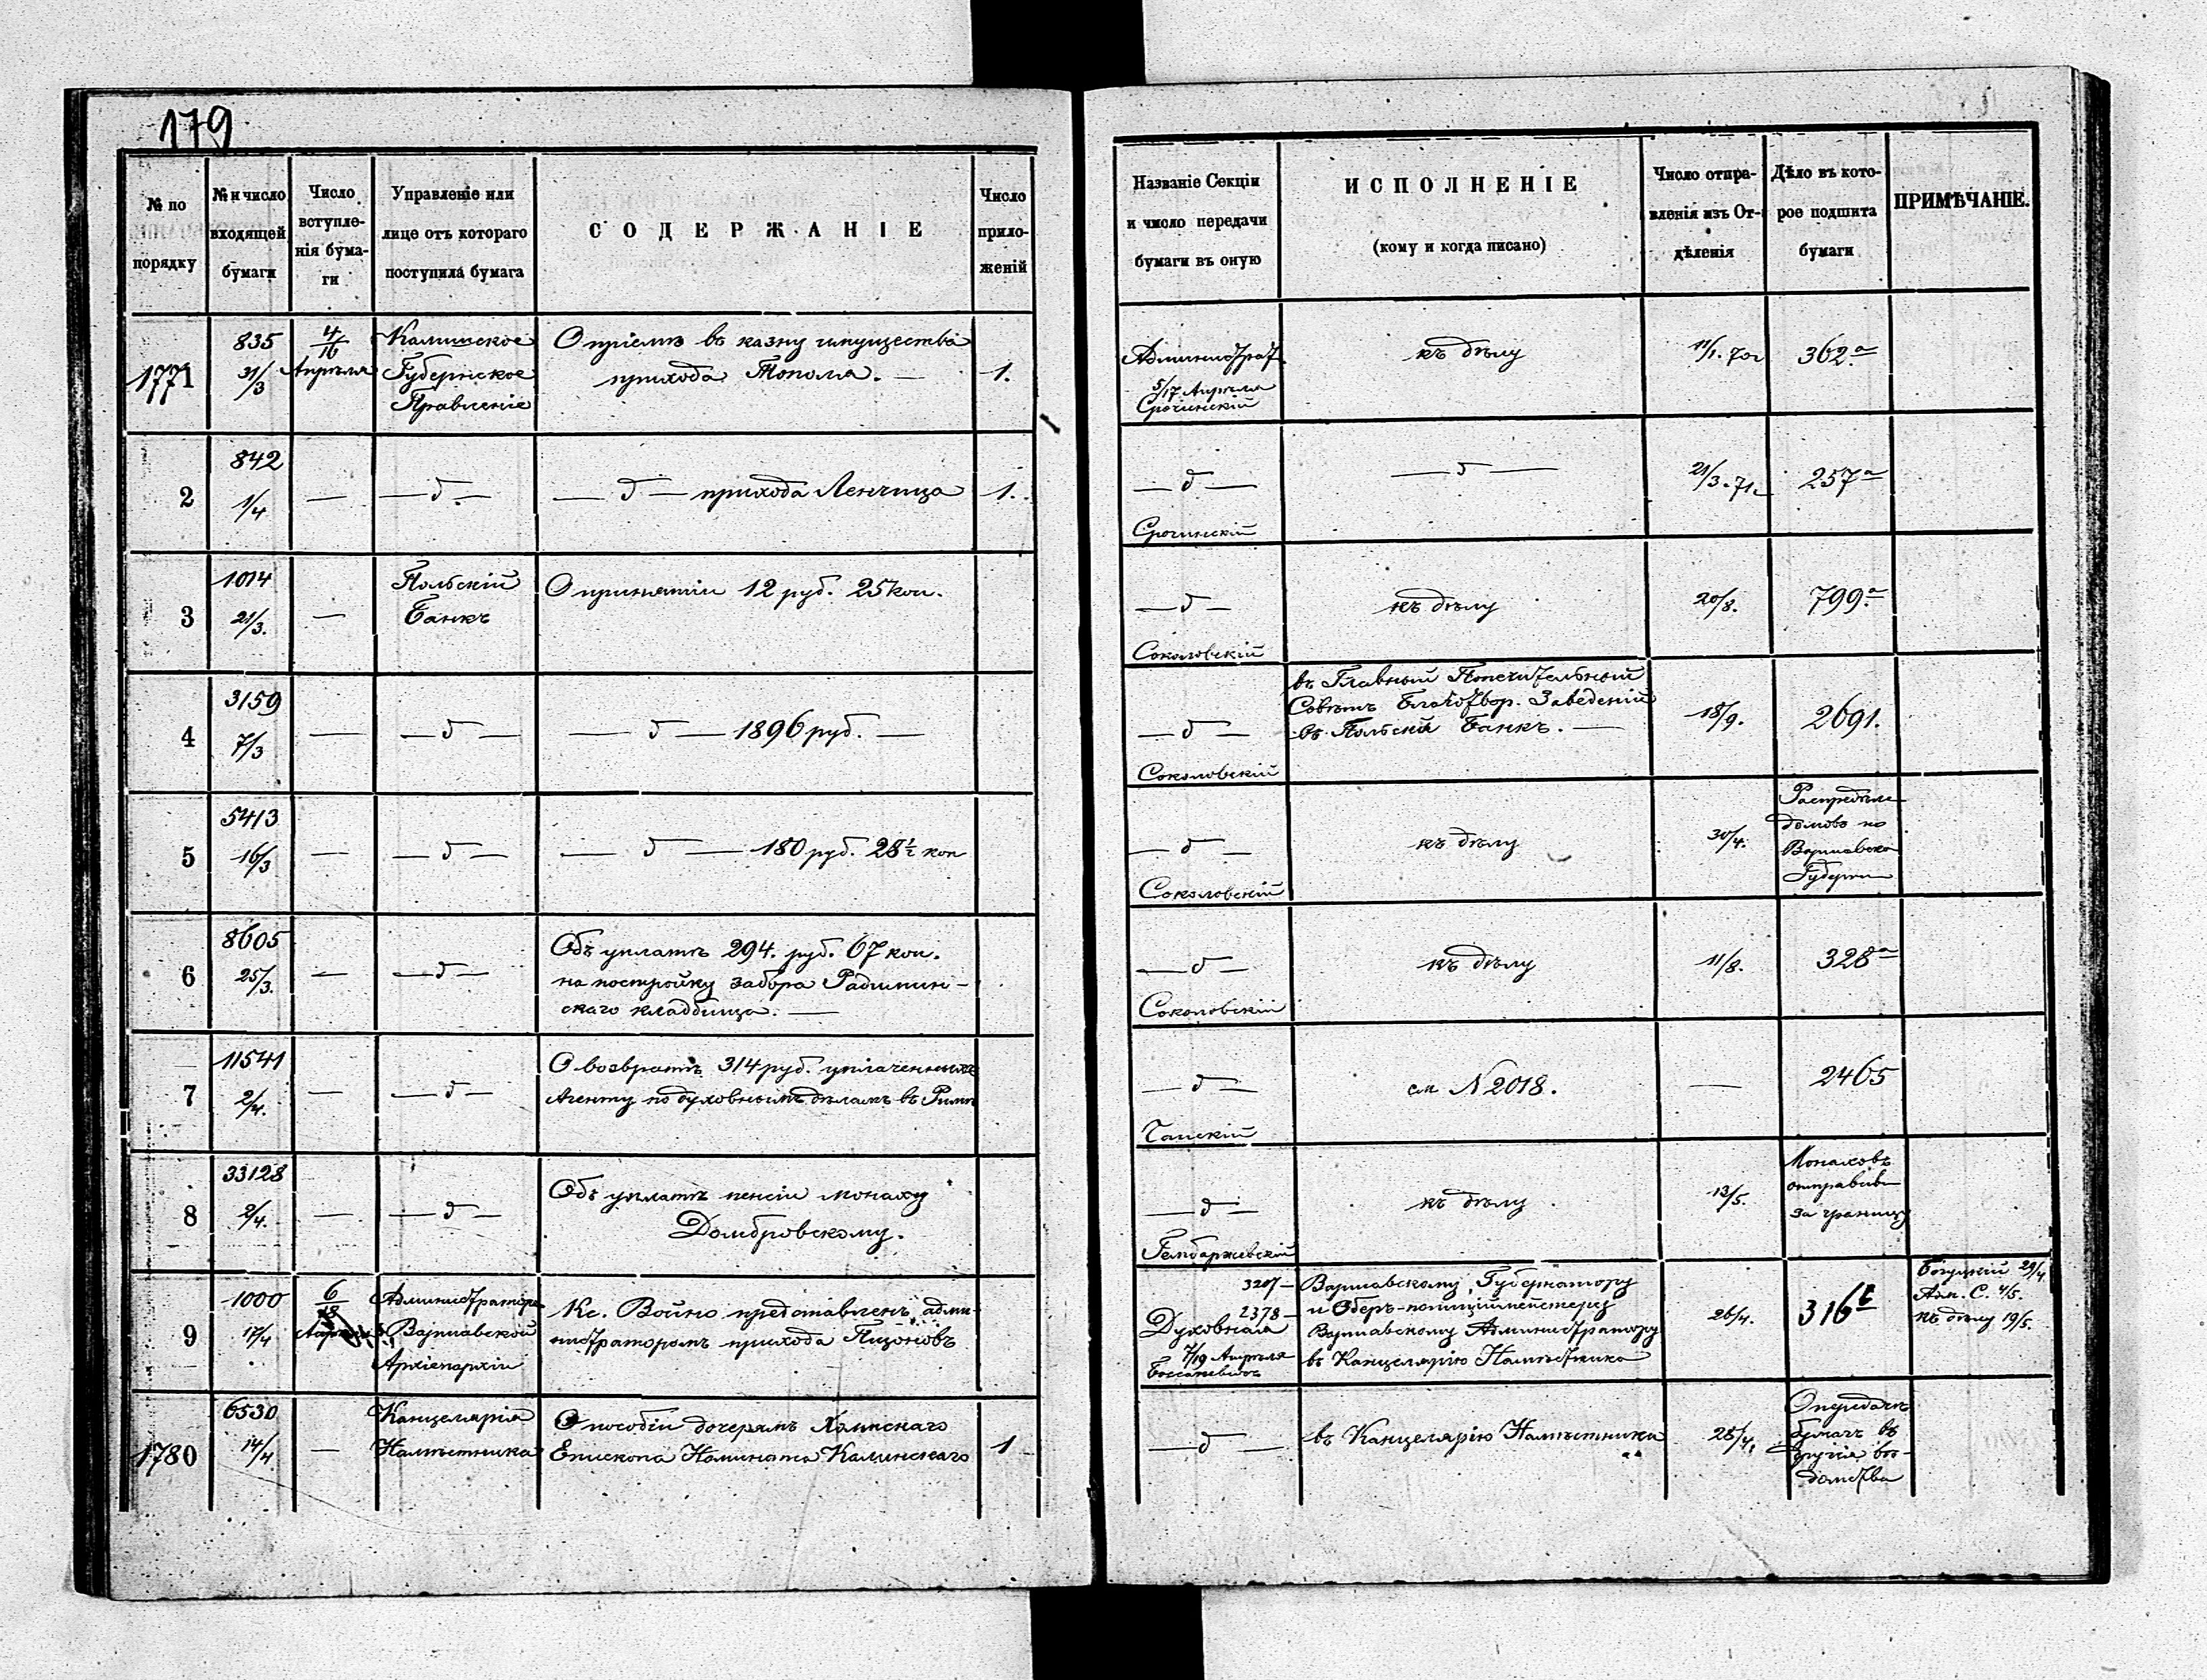 179
№ по порядку
№ и число входящей бумаги
Число вступле-
нія бума-
ги
Управленіе или
лице отъ котораго
поступила бумага
СОДЕРЖАНІЕ
Число
прило-
женій
Названіе Секціи
и число передачи
бумаги въ оную
ИСПОЛНЕНІЕ
(кому и когда писано)
Число отпра-
вленія изъ От-
дѣленія
Дѣло въ кото-
рое подшита
бумаги
ПРИМѢЧАНІЕ.
1771
835
31/3
4/16
Апрѣля
Калишское
Губернское
Правленіе
О пріемѣ въ казну имущества
прихода Топола. —
1.
Администрат.
5/17 Апрѣля
Срочинскій
къ дѣлу
11/1. 70г
362 а
2
842
1/4
—
— д —
— д — прихода Ленчица
1.
— д —
Срочинскій
— д —
21/3. 71г
257 а
3
1014
21/3.
—
Польскій
Банкъ
О принятіи 12 руб. 25 коп.
— д —
Соколовскій
къ дѣлу
20/8.
799. а
4
3159
7/3
—
— д —
— д — 1896 руб. —
— д —
Соколовскій
въ Главный Попечительный
Совѣтъ Благотвор. Заведеній
въ Польскій Банкъ. —
18/9.
2691.
5
5413
16/3
—
— д —
— д — 180 руб. 28½ коп
— д —
Соколовскій
къ дѣлу
30/4.
Распредѣле
домовъ по
Варшавско
Губерніи
6
8605
25/3.
—
— д —
Объ уплатѣ 294. руб. 67 коп.
на постройку забора Радимин-
скаго кладбища. —
— д —
Соколовскій
къ дѣлу
11/8.
328 а
7
11541
2/4.
—
— д —
О возвратѣ 314 руб. уплаченныхъ
Агенту по духовнымъ дѣламъ въ Римѣ
— д —
Чапскій
см N 2018.
—
2465
8
33128
2/4.
—
— д —
Объ уплатѣ пенсіи монаху
Домбровскому.
— д —
Гембаржевскій
къ дѣлу
13/5.
Монаховъ
отправивъ
за границу
9
1000
17/4
6/18
Апрѣля
Администраторъ
Варшавской
Архіепархіи
Кс. Войно представленъ адми-
нистраторомъ прихода
3207 —
2378 —
Духовная
7/19 Апрѣля
Варшавскому Губернатору
и Оберъ-полиціймейстеру
Варшавскому Администратору
въ Канцелярію Намѣстника
26/4.
316
29/4
Адм. С. 4/5.
къ дѣлу 19/5.
1780
6530
14/4
—
Канцелярія
Намѣстника
О пособіи дочерямъ Холмскаго
Епископа Номината Калинскаго
1
— д —
въ Канцелярію Намѣстника
28/4.
О передачѣ
бумагъ въ
другія вѣ-
домства